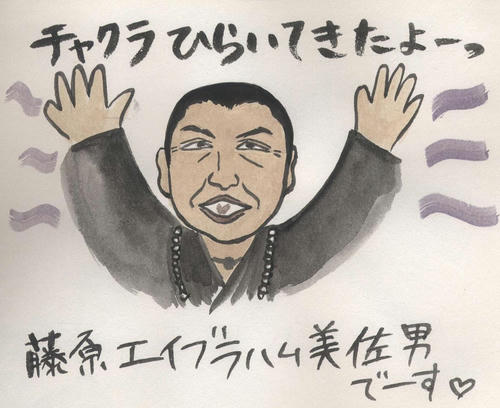 チャクラひらいてきたよーっ
藤原エイブラハム美佐男
でーす♡